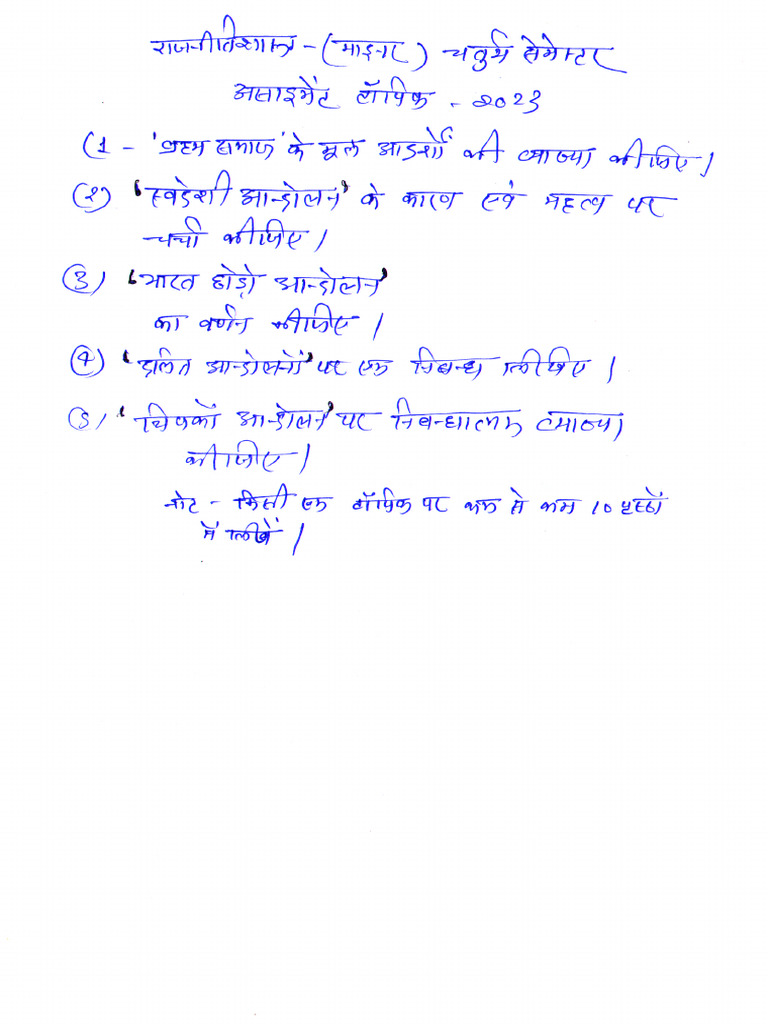 राजनीतिशास्त्र - (माइनर) चतुर्थ सेमेस्टर
असाइमेंट टॉपिक - २०२३
(1 - 'ब्रह्म समाज' के मूल आदर्शों की व्याख्या कीजिए।
(२) 'स्वदेशी आन्दोलन' के कारण एवं महत्व पर
चर्चा कीजिए।
(3) 'भारत छोड़ो आन्दोलन'
का वर्णन कीजिए।
(4) 'दलित आन्दोलनों' पर एक निबन्ध लिखिए।
(5) 'चिपको आन्दोलन' पर निबन्धात्मक व्याख्या
कीजिए।
नोट - किसी एक टॉपिक पर कम से कम 10 पृष्ठों
में लिखें।